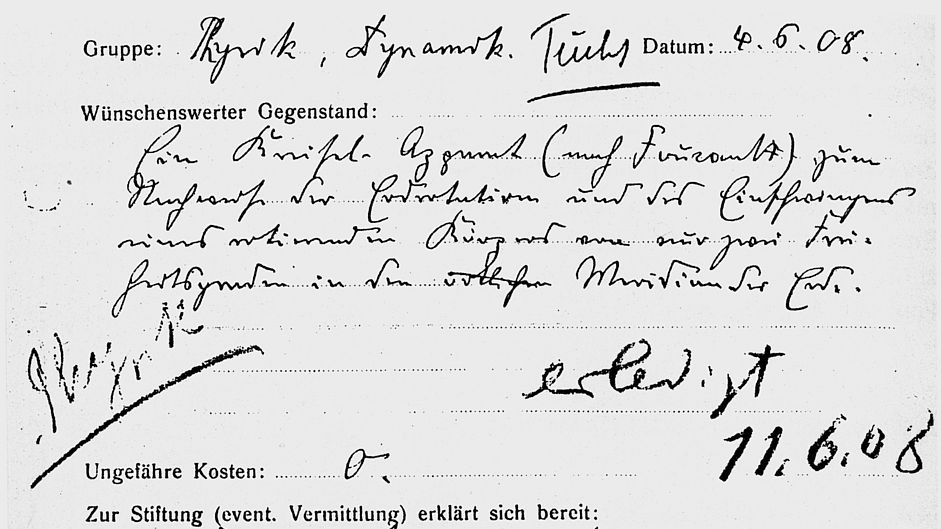 Gruppe: Physik, Dynamik. Datum: 4. 6. 08.
Wünschenswerter Gegenstand:
Ein Kreisel-Apparat (nach Foucault) zum
Nachweise der Erdrotation und des Einschwingens
eines rotierenden Körpers von nur zwei Frei-
heitsgraden in den örtlichen Meridian der Erde.
Physik
erledigt
11.6.08
Ungefähre Kosten: 0.
Zur Stiftung (event. Vermittlung) erklärt sich bereit: